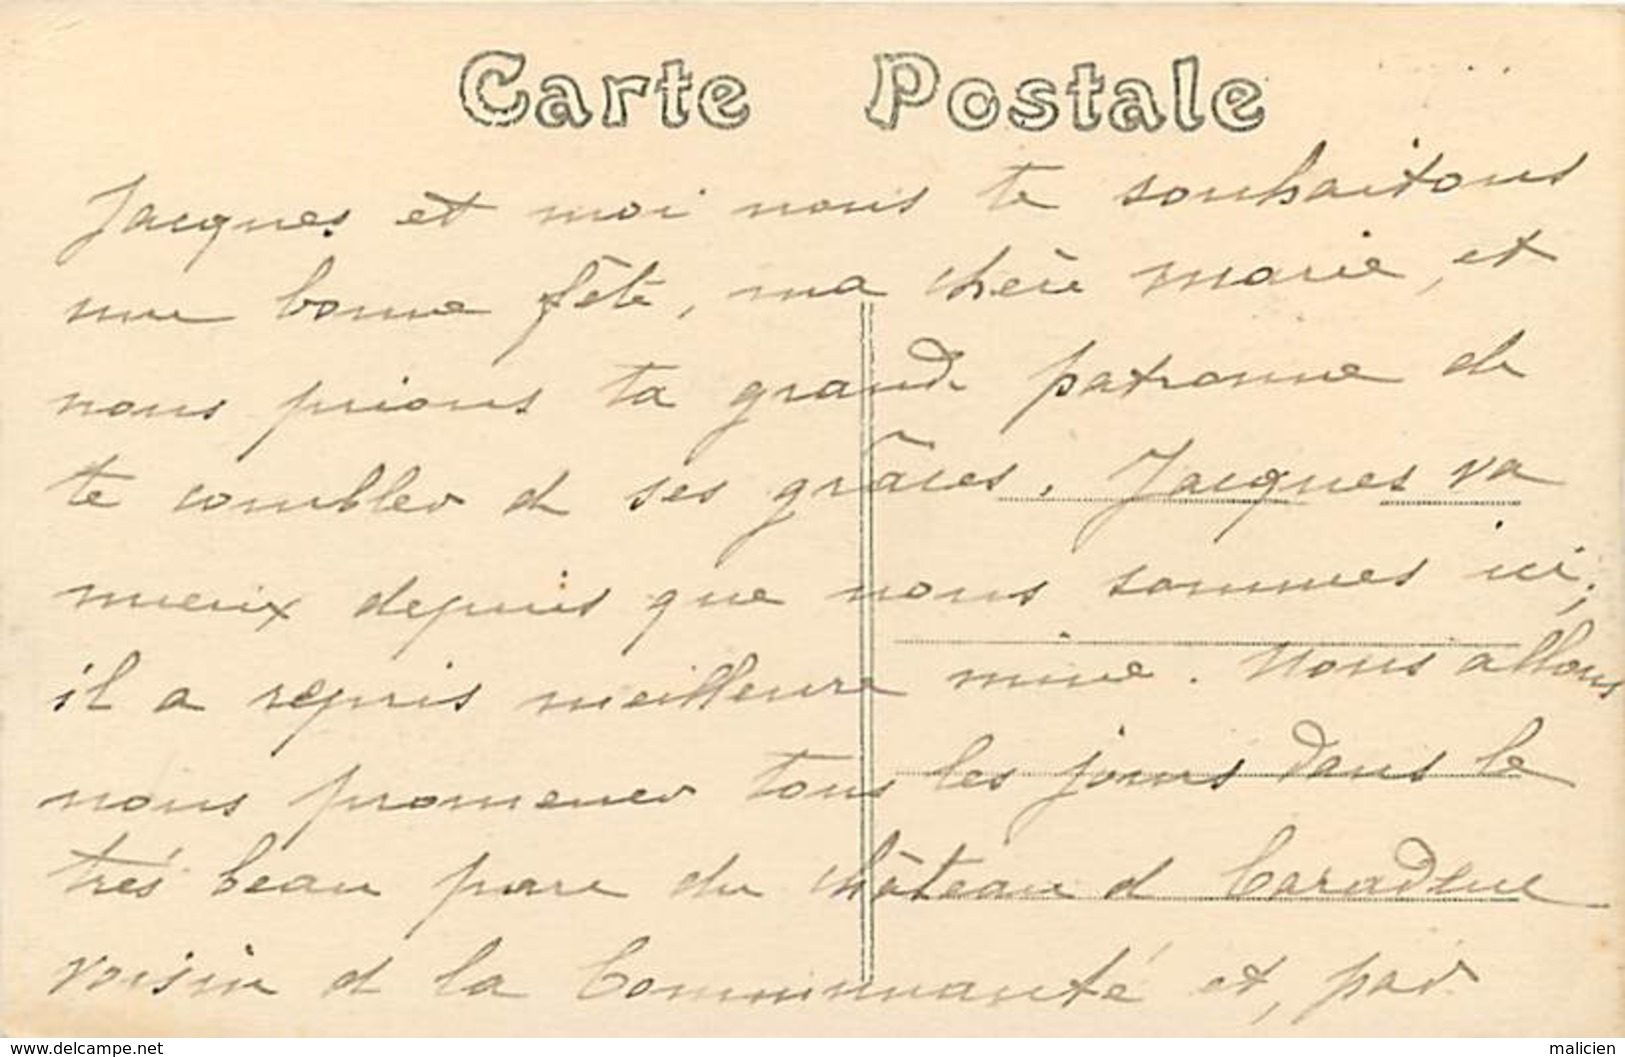 Carte Postale
Jacques et moi nous te souhaitons
une bonne fête, ma chère Marie, et
nous prions ta grande patronne de
te combler de ses grâces. Jacques va
mieux depuis que nous sommes ici;
il a repris meilleure mine. Nous allons
nous promener tous les jours dans le
très beau parc du château de Caradeuc
voisin de la Communauté et, par
www.delcampe.net
malicien